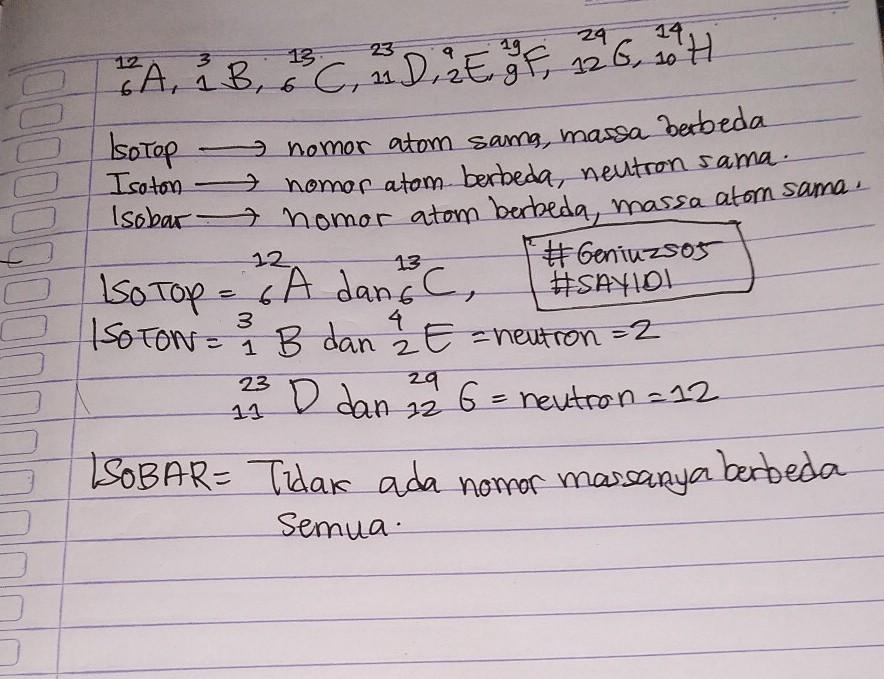 ¹²₆A, ³₁B, ¹³₆C, ²³₁₁D, ⁹₂E, ¹⁹₉F, ²⁹₁₂G, ¹⁹₁₀H
Isotop → nomor atom sama, massa berbeda
Isoton → nomor atom berbeda, neutron sama.
Isobar → nomor atom berbeda, massa atom sama.
#Geniuzs05
#SAY101
ISOTOP = ¹²₆A dan ¹³₆C,
ISOTON = ³₁B dan ⁴₂E = neutron = 2
²³₁₁D dan ²⁹₁₂G = neutron = 12
ISOBAR = Tidak ada nomor massanya berbeda
semua.